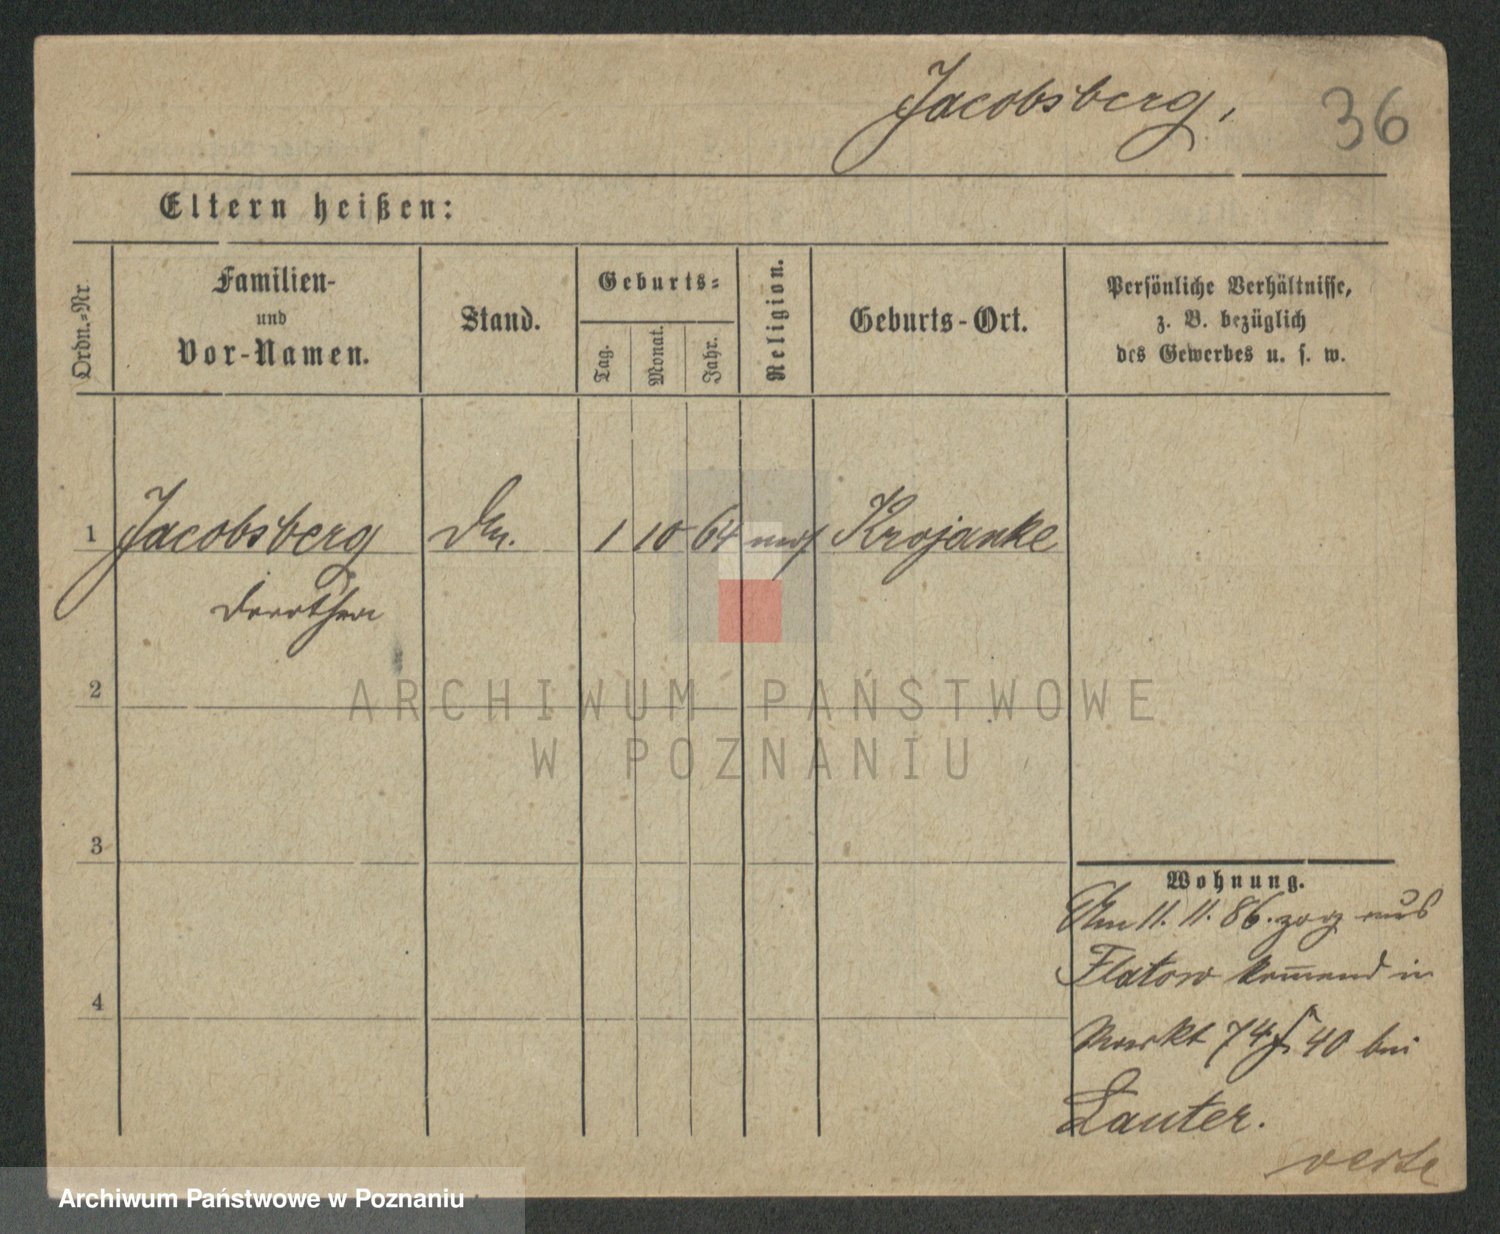 Jacobsberg, 36
Eltern heißen:
Ordn.-Nr.
Familien-
und
Vor-Namen.
Stand.
Geburts-
Tag.
Monat.
Jahr.
Religion.
Geburts-Ort.
Persönliche Verhältnisse,
z. B. bezüglich
des Gewerbes u. s. w.
1 Jacobsberg 1 10 64 mos Krojanke
Dorothea
2
ARCHIWUM PAŃSTWOWE
W POZNANIU
3
Wohnung.
Am 11. 11. 86. zog aus
Flatow kom̅end in
4
Markt 74 40 bei
Lauter.
verte
Archiwum Państwowe w Poznaniu